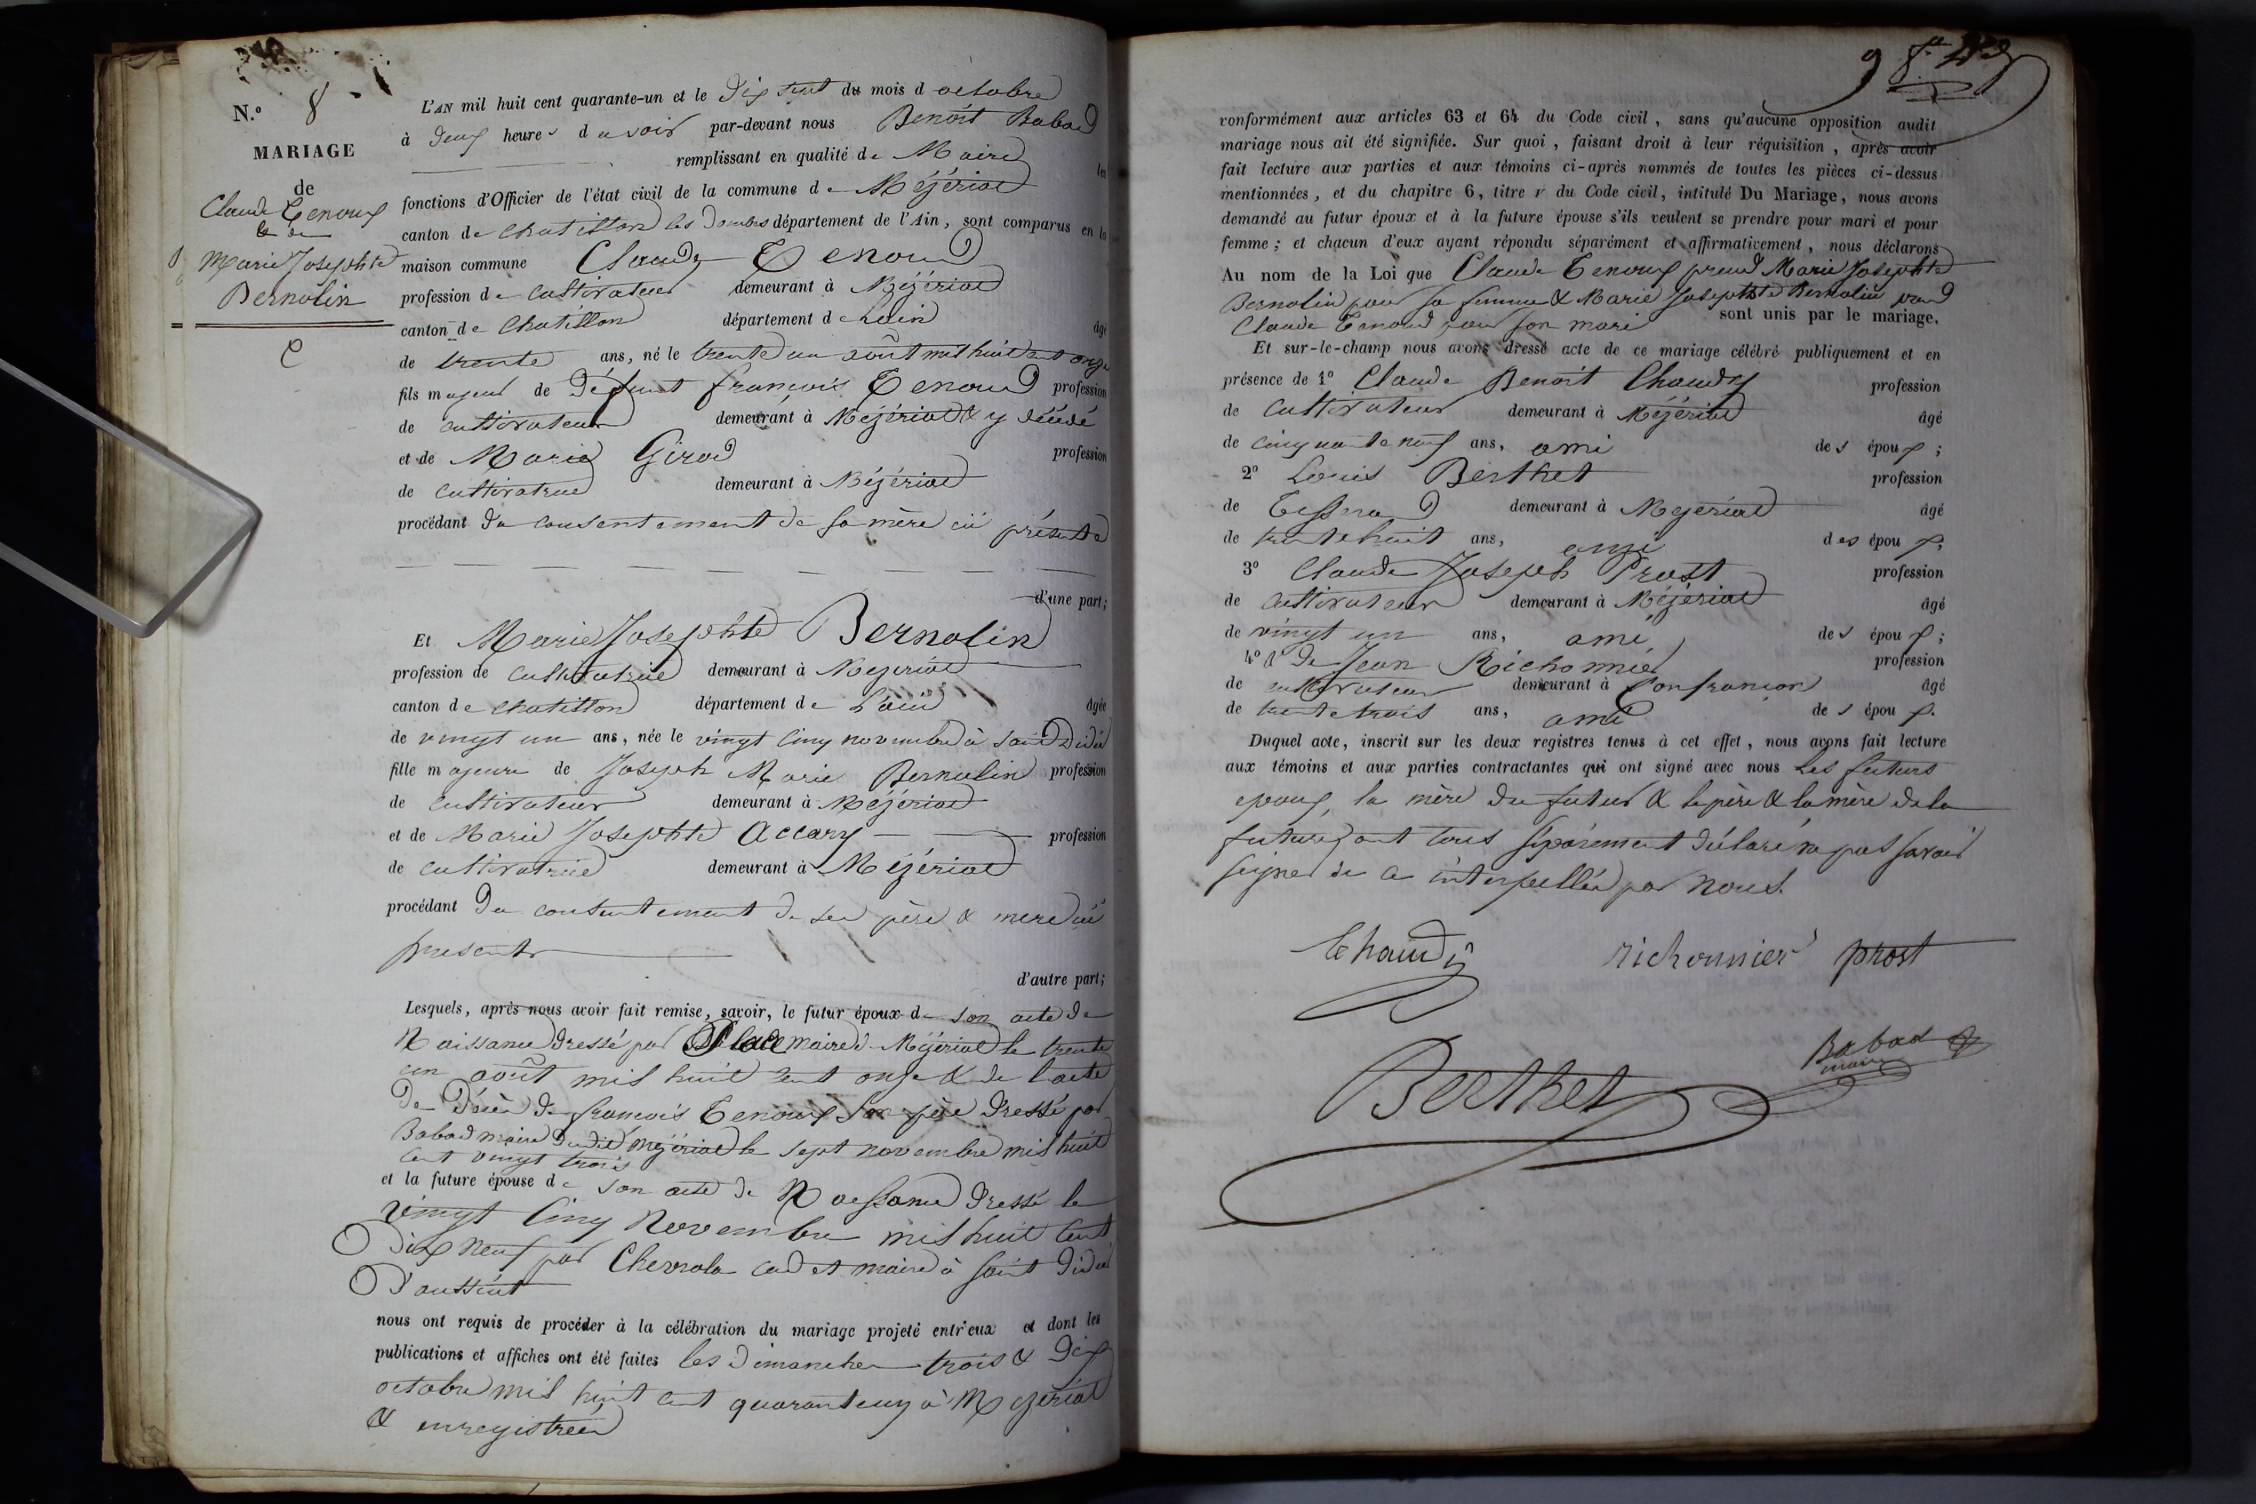 N.° 8
MARIAGE
de
Claude Tenoux
&
Marie Josephte
Bernolin
L'AN mil huit cent quarante-un et le dix sept du mois d octobre
à deux heures du soir par-devant nous Benoît Babad
remplissant en qualité de Maire les
fonctions d'Officier de l'état civil de la commune de Mézériat
canton de Chatillon les Dombes département de l'Ain, sont comparus en la
maison commune Claude Tenoud
profession de cultivateur demeurant à Mézériat
canton de Chatillon département de Lain âgé
de trente ans, né le trente un août mil huit cent onze
fils majeur de défunt françois Tenoud profession
de cultivateur demeurant à Mézériat & y décédé
et de Marie Girod profession
de cultivatrice demeurant à Mézériat
procédant du consentement de sa mère ici présente
d'une part;
Et Marie Josephte Bernolin
profession de cultivatrice demeurant à Mezeriat
canton de chatillon département de L'ain âgée
de vingt un ans, née le vingt cinq novembre à Saint Didié
fille majeure de Joseph Marie Bernolin profession
de cultivateur demeurant à Mézériat
et de Marie Josephte Accary profession
de cultivatrice demeurant à Mézériat
procédant du consentement de ses père & mere ici
presents
d'autre part;
Lesquels, après nous avoir fait remise, savoir, le futur époux de son acte de
Naissance dressé par maire de Mézériat le trente
un août mil huit cent onze & de l'acte
de décès de françois Tenoux son père dressé par
Babad maire dudit Mézériat le sept novembre mil huit
cent vingt trois
et la future épouse de son acte de Naissance dressé le
vingt cinq Novembre mil huit cent
dix neuf par Chevrola cadet maire à saint Didié
D'aussiat
nous ont requis de procéder à la célébration du mariage projeté entr'eux et dont les
publications et affiches ont été faites les dimanches trois & dix
octobre mil huit cent quarante un à Mezériat
& enregistrées
9
conformément aux articles 63 et 64 du Code civil, sans qu'aucune opposition audit
mariage nous ait été signifiée. Sur quoi, faisant droit à leur réquisition, après avoir
fait lecture aux parties et aux témoins ci-après nommés de toutes les pièces ci-dessus
mentionnées, et du chapitre 6, titre v du Code civil, intitulé Du Mariage, nous avons
demandé au futur époux et à la future épouse s'ils veulent se prendre pour mari et pour
femme; et chacun d'eux ayant répondu séparément et affirmativement, nous déclarons
Au nom de la Loi que Claude Tenoux prend Marie Josephte
Bernolin pour sa femme & Marie Josephte Bernolin prend
Claude Tenoud pour son mari sont unis par le mariage.
Et sur-le-champ nous avons dressé acte de ce mariage célébré publiquement et en
présence de 1° Claude Benoit Chaudy profession
de cultivateur demeurant à Mézériat âgé
de cinquante neuf ans, ami des époux;
2° Louis Berthet profession
de Tisserand demeurant à Mezériat âgé
de trente huit ans, ami des époux;
3° Claude Joseph Prost profession
de cultivateur demeurant à Mézériat âgé
de vingt un ans, ami des époux;
4° & de Jean Richonnier profession
de cultivateur demeurant à Confrançon âgé
de trente trois ans, ami des époux.
Duquel acte, inscrit sur les deux registres tenus à cet effet, nous avons fait lecture
aux témoins et aux parties contractantes qui ont signé avec nous Les futurs
epoux, la mère du futur & le père & la mère de la
future ont tous séparément déclaré ne pas savoir
signer de ce interpellés par Nous.
Chaudy richonnier prost
Berthet Babad
maire